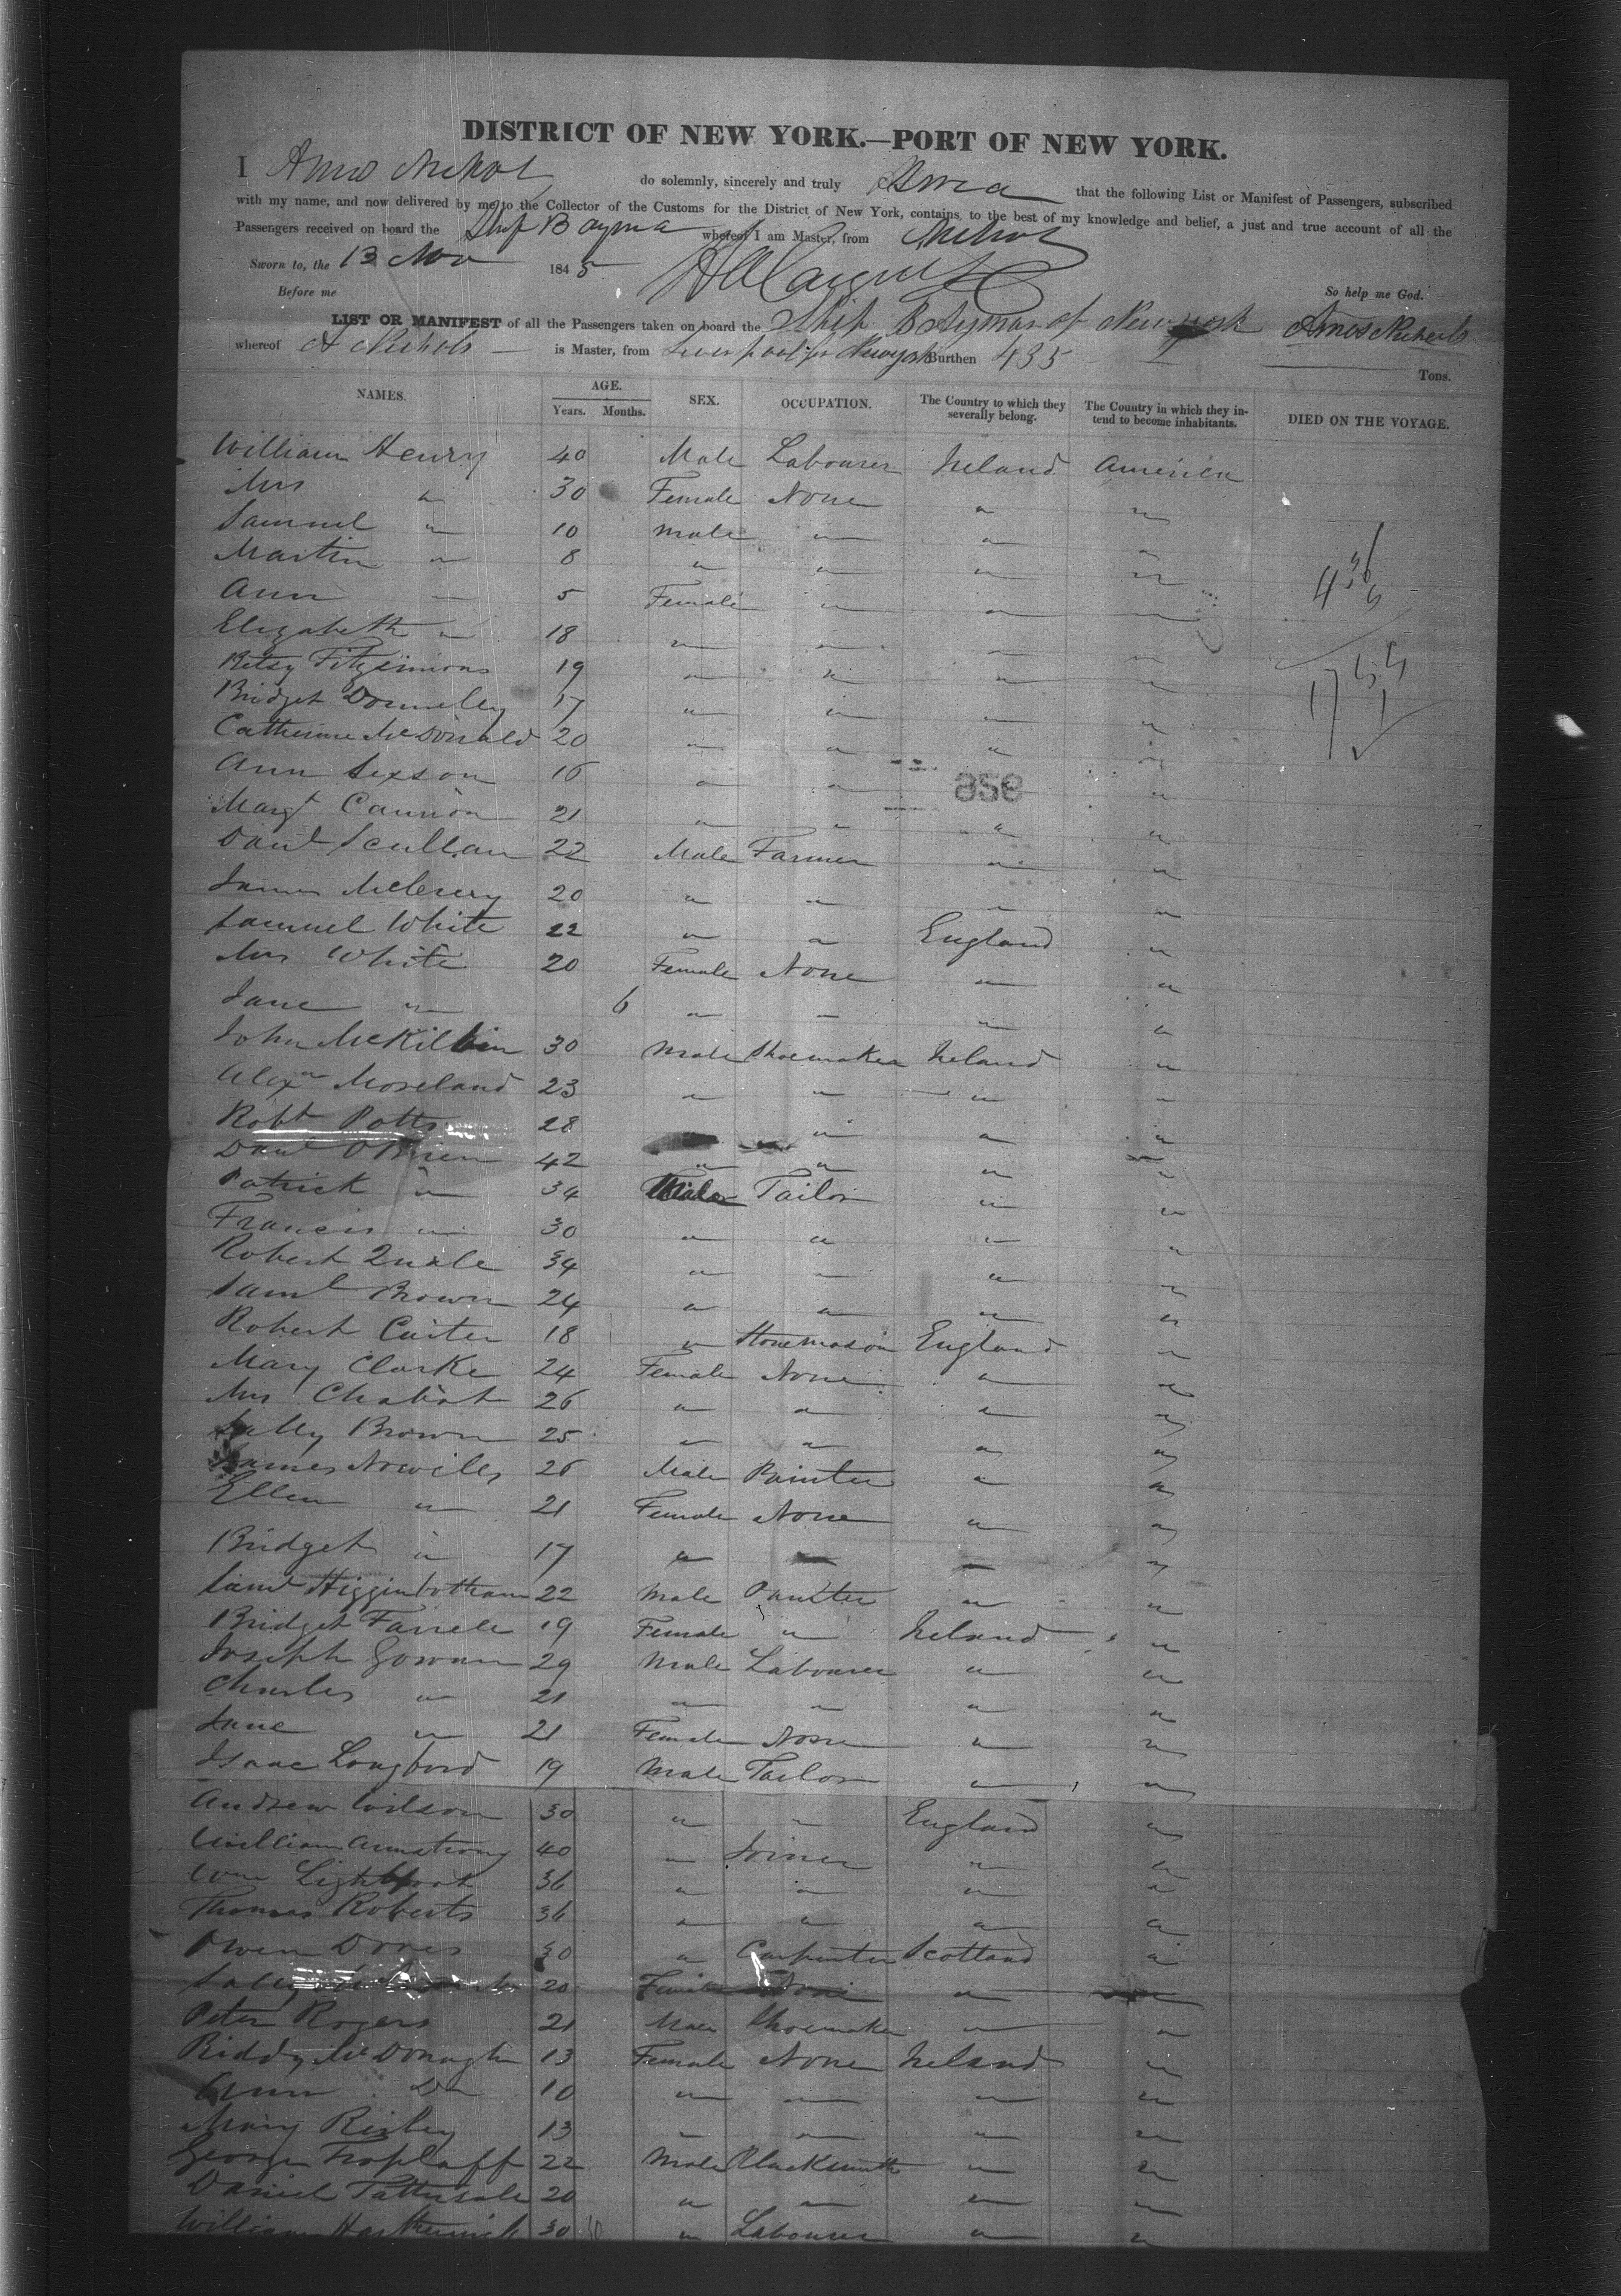 DISTRICT OF NEW YORK.—PORT OF NEW YORK.
I Amos Nichol do solemnly, sincerely and truly Swear that the following List or Manifest of Passengers, subscribed
with my name, and now delivered by me to the Collector of the Customs for the District of New York, contains, to the best of my knowledge and belief, a just and true account of all the
Passengers received on board the Ship Bayma whereof I am Master, from
Sworn to, the 13 Nov 1845
Before me So help me God.
LIST OR MANIFEST of all the Passengers taken on board the Ship of New york Amos Nichols
whereof A Nichols is Master, from Liverpool for Newyork Burthen 435 Tons.
NAMES. AGE. Years. Months. SEX. OCCUPATION. The Country to which they severally belong. The Country in which they intend to become inhabitants. DIED ON THE VOYAGE.
William Henry 40 Male Labourer Ireland America
Mrs " 30 Female None " "
Samuel " 10 Male " " "
Martin " 8 " " " "
Ann " 5 Female " " "
Elizabeth " 18 " " " "
Betsy Fitzsimons 19 " " " "
Bridget Donnelly 17 " " " "
Catherine McDonald 20 " " " "
Ann Sexson 16 " " " "
956
Margt Cannon 21 " " " "
Danl Scullan 22 Male Farmer " "
James 20 " " " "
Samuel White 22 " " England "
Mrs White 20 Female None " "
Jane " 6 " " " "
John McKilbin 30 Male Shoemaker Ireland "
Alexr Moreland 23 " " " "
Robt Potts 28 " " " "
Danl OBrien 42 " " " "
Patrick " 34 Male Tailor " "
Francis " 30 " " " "
Robert Quale 34 " " " "
Saml Brown 24 " " " "
Robert Carter 18 " Stonemason England "
Mary Clarke 24 Female None " "
Mrs 26 " " " "
Sally Brown 25 " " " "
James 26 Male Painter " "
Ellen " 21 Female None " "
Bridget " 17 " " " "
Saml Higginbotham 22 Male Painter " "
Bridget Farrell 19 Female " Ireland "
Joseph Gowan 29 Male Labourer " "
Charles " 21 " " " "
Jane " 21 Female None " "
Isaac Longford 19 Male Tailor " "
Andrew Wilson 30 " " England "
William Armstrong 40 " Joiner " "
Wm Lightfoot 36 " " " "
Thomas Roberts 36 " " " "
Owen 30 " Carpenter Scotland "
Sally 20 Female None " "
Peter Rogers 21 Male Shoemaker " "
Biddy McDonagh 13 Female None Ireland "
Ann Do 10 " " " "
Mary 13 " " " "
George 22 Male Blacksmith " "
Daniel Tattersale 20 " " " "
William 30 " Labourer " "